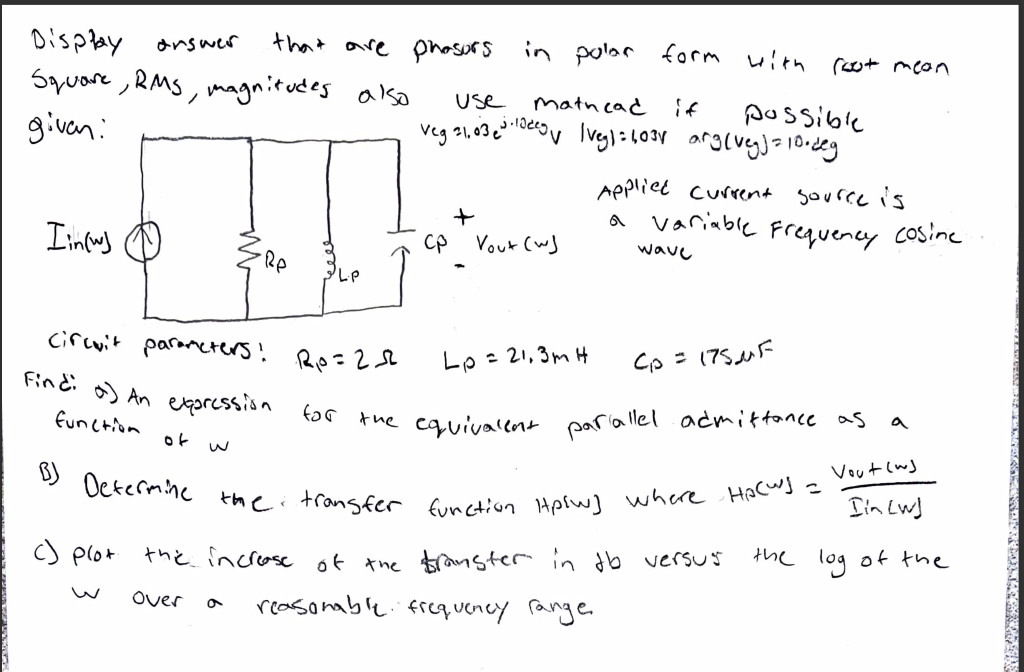 Display answer that are phasors in polar form with root mean
Square, RMS, magnitudes also use mathcad if possible
given:
Veg = 1,03 e^j·10deg V |Veg| = 1,03V arg(Veg) = 10·deg
Applied current source is
a variable Frequency cosine
wave
Iin(w)
Rp
Lp
Cp
+
Vout (w)
-
Circuit parameters: Rp = 2 Ω Lp = 21,3mH Cp = 175 μF
Find: a) An expression for the equivalent parallel admittance as a
function of w
B) Determine the transfer function Hp(w) where Hp(w) = Vout(w) / Iin(w)
C) plot the increase of the transfer in db versus the log of the
w over a reasonable frequency range